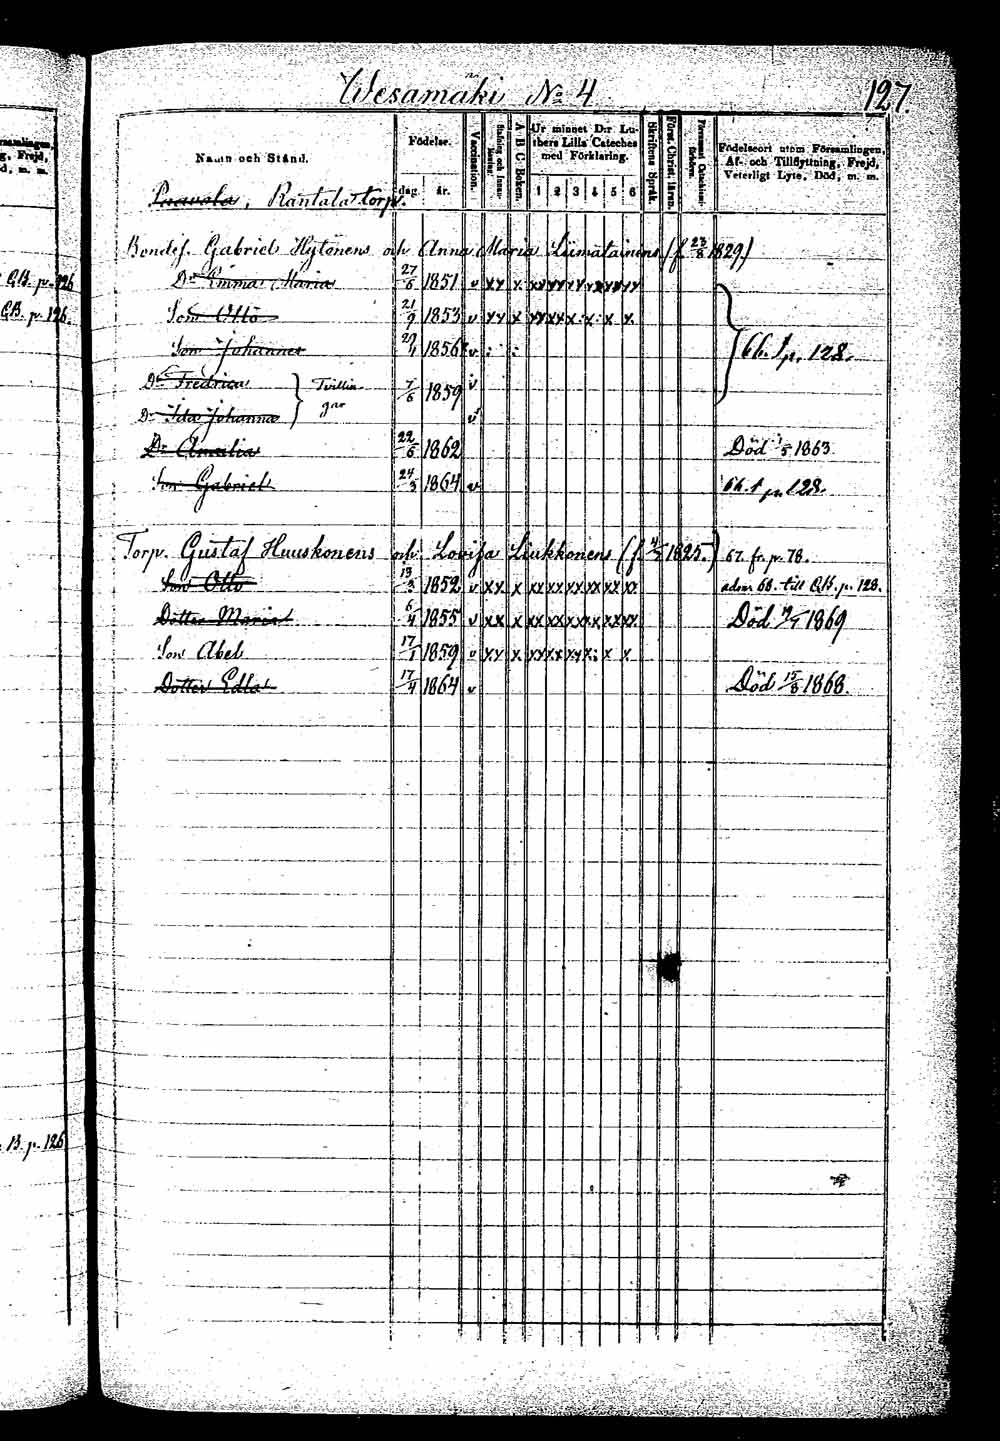 Wesamäki No 4
127
Namn och Stånd.
Födelse.
dag.
år.
Vaccination.
A B C Boken.
Ur minnet D:r Lu-
thers Lilla Cateches
med Förklaring.
1 2 3 4 5 6
Skriftens Språk.
Först. Christ. läran.
Födelseort utom Församlingen,
Af- och Tillflyttning, Frejd,
Veterligt Lyte, Död, m. m.
Paavola, Rantala torp.
Bondes. Gabriel Hytönens och Anna Maria Liimatainens (f. 23/8 1829)
Dr Emma Maria 27/6 1851 v xy x xx xx xx xx xx xx
Son Otto 21/9 1853 v xy x xx xx x x x x
Son Johannes 29/4 1856 v
66. f p. 128.
Dr Fredrica Tvillin 7/6 1859 v
Dr Ida Johanna gar v
Dr Amalia 22/6 1862 Död 1/5 1863
Son Gabriel 24/3 1864 v 66. f p. 128.
Torp. Gustaf Huuskonens och Lovisa Liukkonens (f. 4/5 1825.) 67. fr. p. 78.
Son Otto 13/3 1852 v xy x xx xx xx xx xx xx adm. 68. till C.B. p. 128.
Dotter Maria 6/4 1855 v xx x xx xx xx xx xx xx Död 1869
Son Abel 17/1 1859 v xy x xx xx xy x x x
Dotter Edla 17/4 1864 v Död 15/8 1868.
C.B. p. 126
C.B. p. 126.
B. p. 126